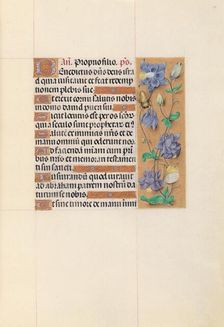 Añ. Propno filio. ps.
Benedictus dñs deus israel
quia visitauit et fecit redemp
tionem plebis sue
Et erexit cornu salutis nobis
in domo dauid pueri sui
Sicut locutus est per os scor
qui a seculo sunt prophetar
Salutem ex inimicis nr̃is et de
manu omnium qui oderunt nos
Ad faciendam miam cum patribus
nr̃is et memorari testamenti
sui sancti
Iusiurandum quod iurauit
ad abraham patrem nostrum da
turum se nobis
Ut sine timore de manu inimi